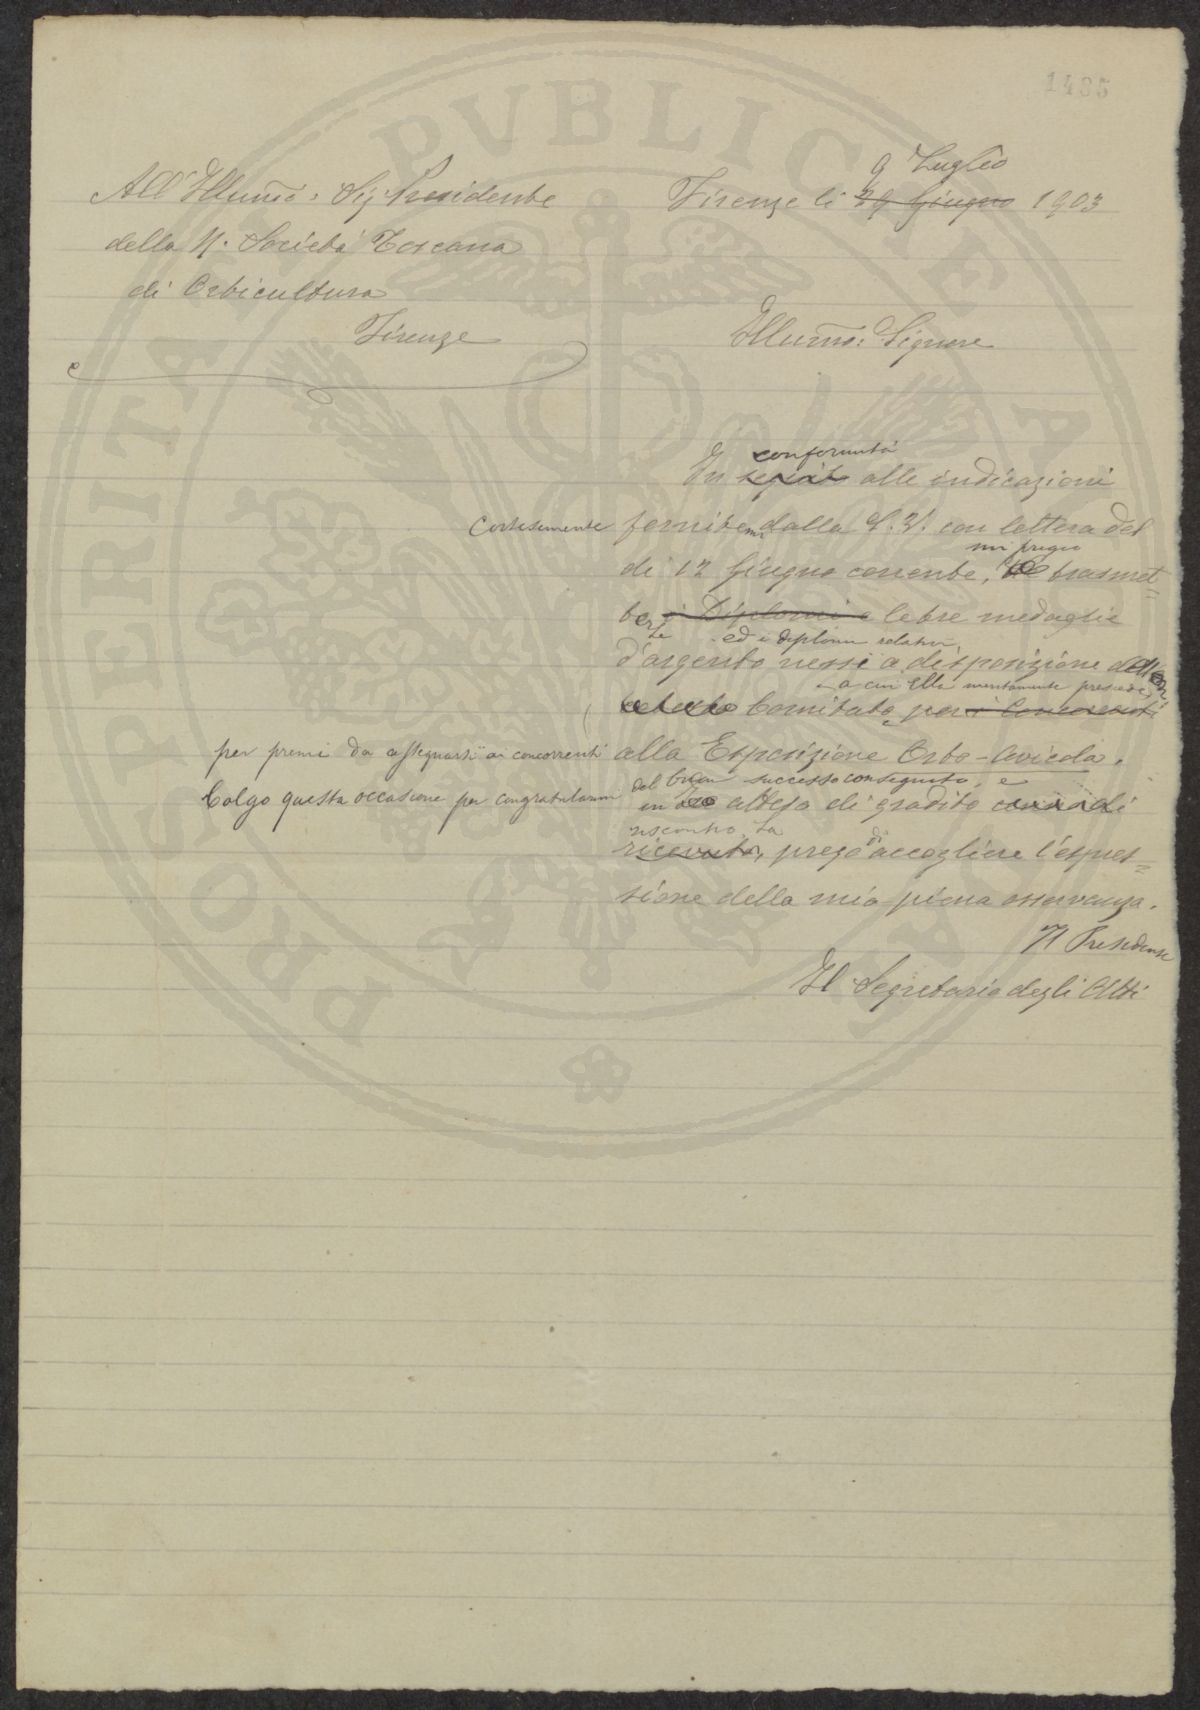 1485
9 Luglio
All' Illumo: Sig. Presidente
Firenze li 29 Giugno 1903
della R. Società Toscana
di Orticultura
Firenze
Illumo: Signore
conformità
In seguito alle indicazioni
Cortesemente fornitemi dalla S. V. con lettera del
mi pregio
di 12 Giugno corrente, trasmet=
terLe i Diplomi e le tre medaglie
ed i diplomi relativi
d'argento messi a disposizione dell'On.
a cui Ella meritamente presiede,
Comitato per i Concorrenti
per premi da assegnarsi ai concorrenti alla Esposizione Orto-Avicola.
Colgo questa occasione per congratularmi del buon successo conseguito, e
in attesa di gradito cenno di
riscontro, La
ricevuta, prego di accogliere l'espres=
sione della mia piena osservanza.
Il Presidente
Il Segretario degli Atti
PROSPERITATI PVBLICAE AVGENDAE